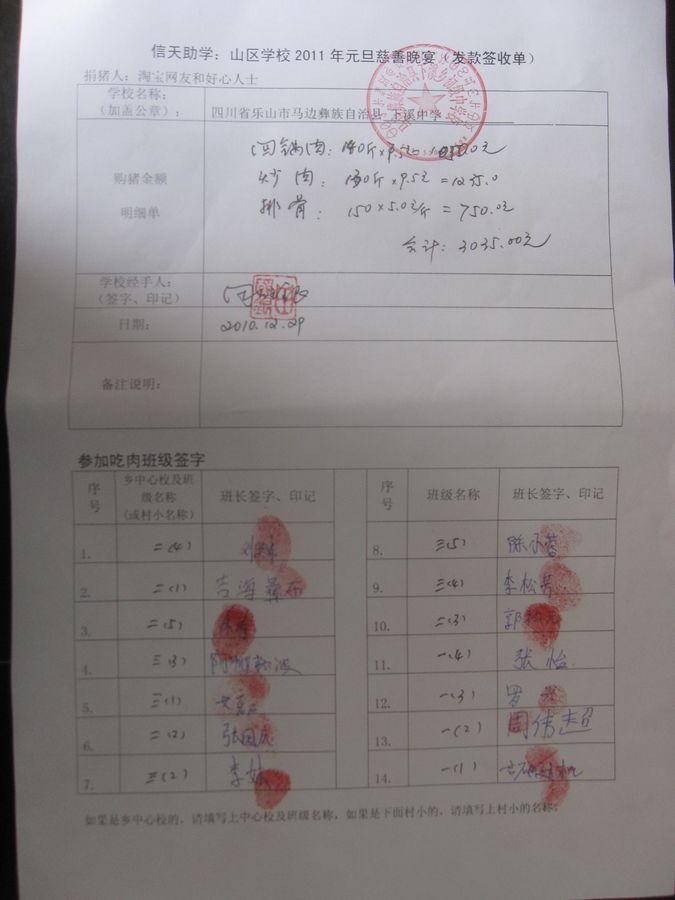 信天助学：山区学校 2011 年元旦慈善晚宴（发款签收单）
捐猪人：淘宝网友和好心人士
学校名称：
（加盖公章）： 四川省乐山市马边彝族自治县 下溪中学
购猪金额
明细单
回锅肉：
炒肉：130斤×9.5元=1235.0
排骨：150×5.0元/斤=750.0元
合计：3035.00元
学校经手人：
（签字、印记）
日期： 2010.12.29
备注说明：
参加吃肉班级签字
序号 乡中心校及班级名称（或村小名称） 班长签字、印记 序号 班级名称 班长签字、印记
1. 二(4) 8. 三(5) 陈小蓉
2. 二(1) 吉海彝布 9. 三(4) 李松
3. 二(5) 10. 二(3) 郭
4. 三(3) 阿 11. 一(4) 张怡
5. 三(1) 12. 一(3) 罗
6. 二(2) 张国庆 13. 一(2) 周伟超
7. 三(2) 李妹 14. 一(1)
如果是乡中心校的，请填写上中心校及班级名称，如果是下面村小的，请填写上村小的名称；